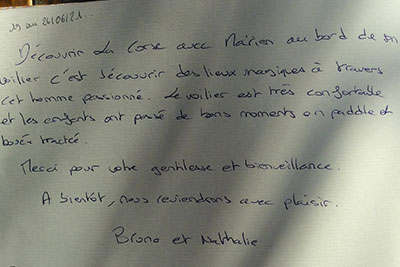 19 au 26/06/21...
Découvrir la Corse avec Marien au bord de son
voilier c'est découvrir des lieux magiques à travers
cet homme passionné. Le voilier est très confortable
et les enfants ont passé de bons moments en paddle et
bouée tractée.
Merci pour votre gentillesse et bienveillance.
A bientôt, nous reviendrons avec plaisir.
Bruno et Nathalie.